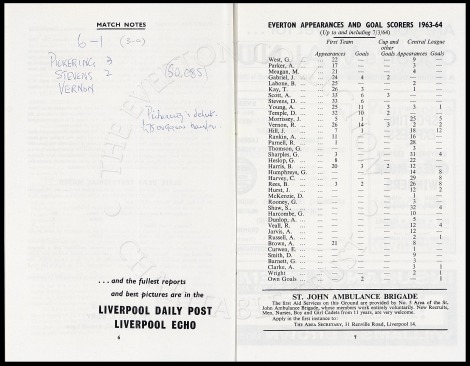 MATCH NOTES
6-1 (3-0)
PICKERING 3
STEVENS 2
VERNON
(50,085)
Pickering's debut.
... and the fullest reports
and best pictures are in the
LIVERPOOL DAILY POST
LIVERPOOL ECHO
6
EVERTON APPEARANCES AND GOAL SCORERS 1963-64
(Up to and including 7/3/64)
First Team Cup and other Central League
Appearances Goals Goals Appearances Goals
West, G. ... 22 ... 9 ...
Parker, A. ... 17 ... 3 ...
Meagan, M. ... 21 ... 4 ...
Gabriel, J. ... 24 4 2 ...
Labone, B. ... 25 ... 2 ...
Kay, T. ... 26 3 ... 1 ...
Scott, A. ... 33 6 3 ...
Stevens, D. ... 33 6 ...
Young, A. ... 25 11 3 3 1
Temple, D. ... 32 10 2 ...
Morrissey, J. ... 5 1 ... 25 5
Vernon, R. ... 26 14 3 2 2
Hill, J. ... 7 1 ... 18 12
Rankin, A. ... 11 ... 16 ...
Parnell, R. ... 1 ... 28 ...
Thomson, G. ... 3 ...
Sharples, G. ... 3 ... 31 4
Heslop, G. ... 8 ... 22 ...
Harris, B. ... 20 1 2 12 ...
Humphreys, G. ... 14 8
Harvey, C. ... 29 8
Rees, B. ... 3 2 ... 26 8
Hurst, J. ... 12 2
McKenzie, D. ... 1 ...
Rooney, G. ... 3 ...
Shaw, S. ... 32 4
Harcombe, G. ... 10 ...
Dunlop, A. ... 5 ...
Veall, R. ... 12 4
Jarvis, A. ... 12 ...
Russell, A. ... 2 1
Brown, A. ... 21 ... 8 ...
Curwen, E. ... 1 ...
Smith, D. ... 9 ...
Barnett, G. ... 3 ...
Clarke, A. ... 1 1
Wright ... 2 1
Own Goals ... 2 ... 1
ST. JOHN AMBULANCE BRIGADE
The first Aid Services on this Ground are provided by No. 3 Area of the St.
John Ambulance Brigade, whose members work entirely voluntarily. New Recruits,
Men, Nurses, Boy and Girl Cadets from 11 years, are very welcome.
Apply in the first instance to:
THE AREA SECRETARY, 31 Renville Road, Liverpool 14.
7